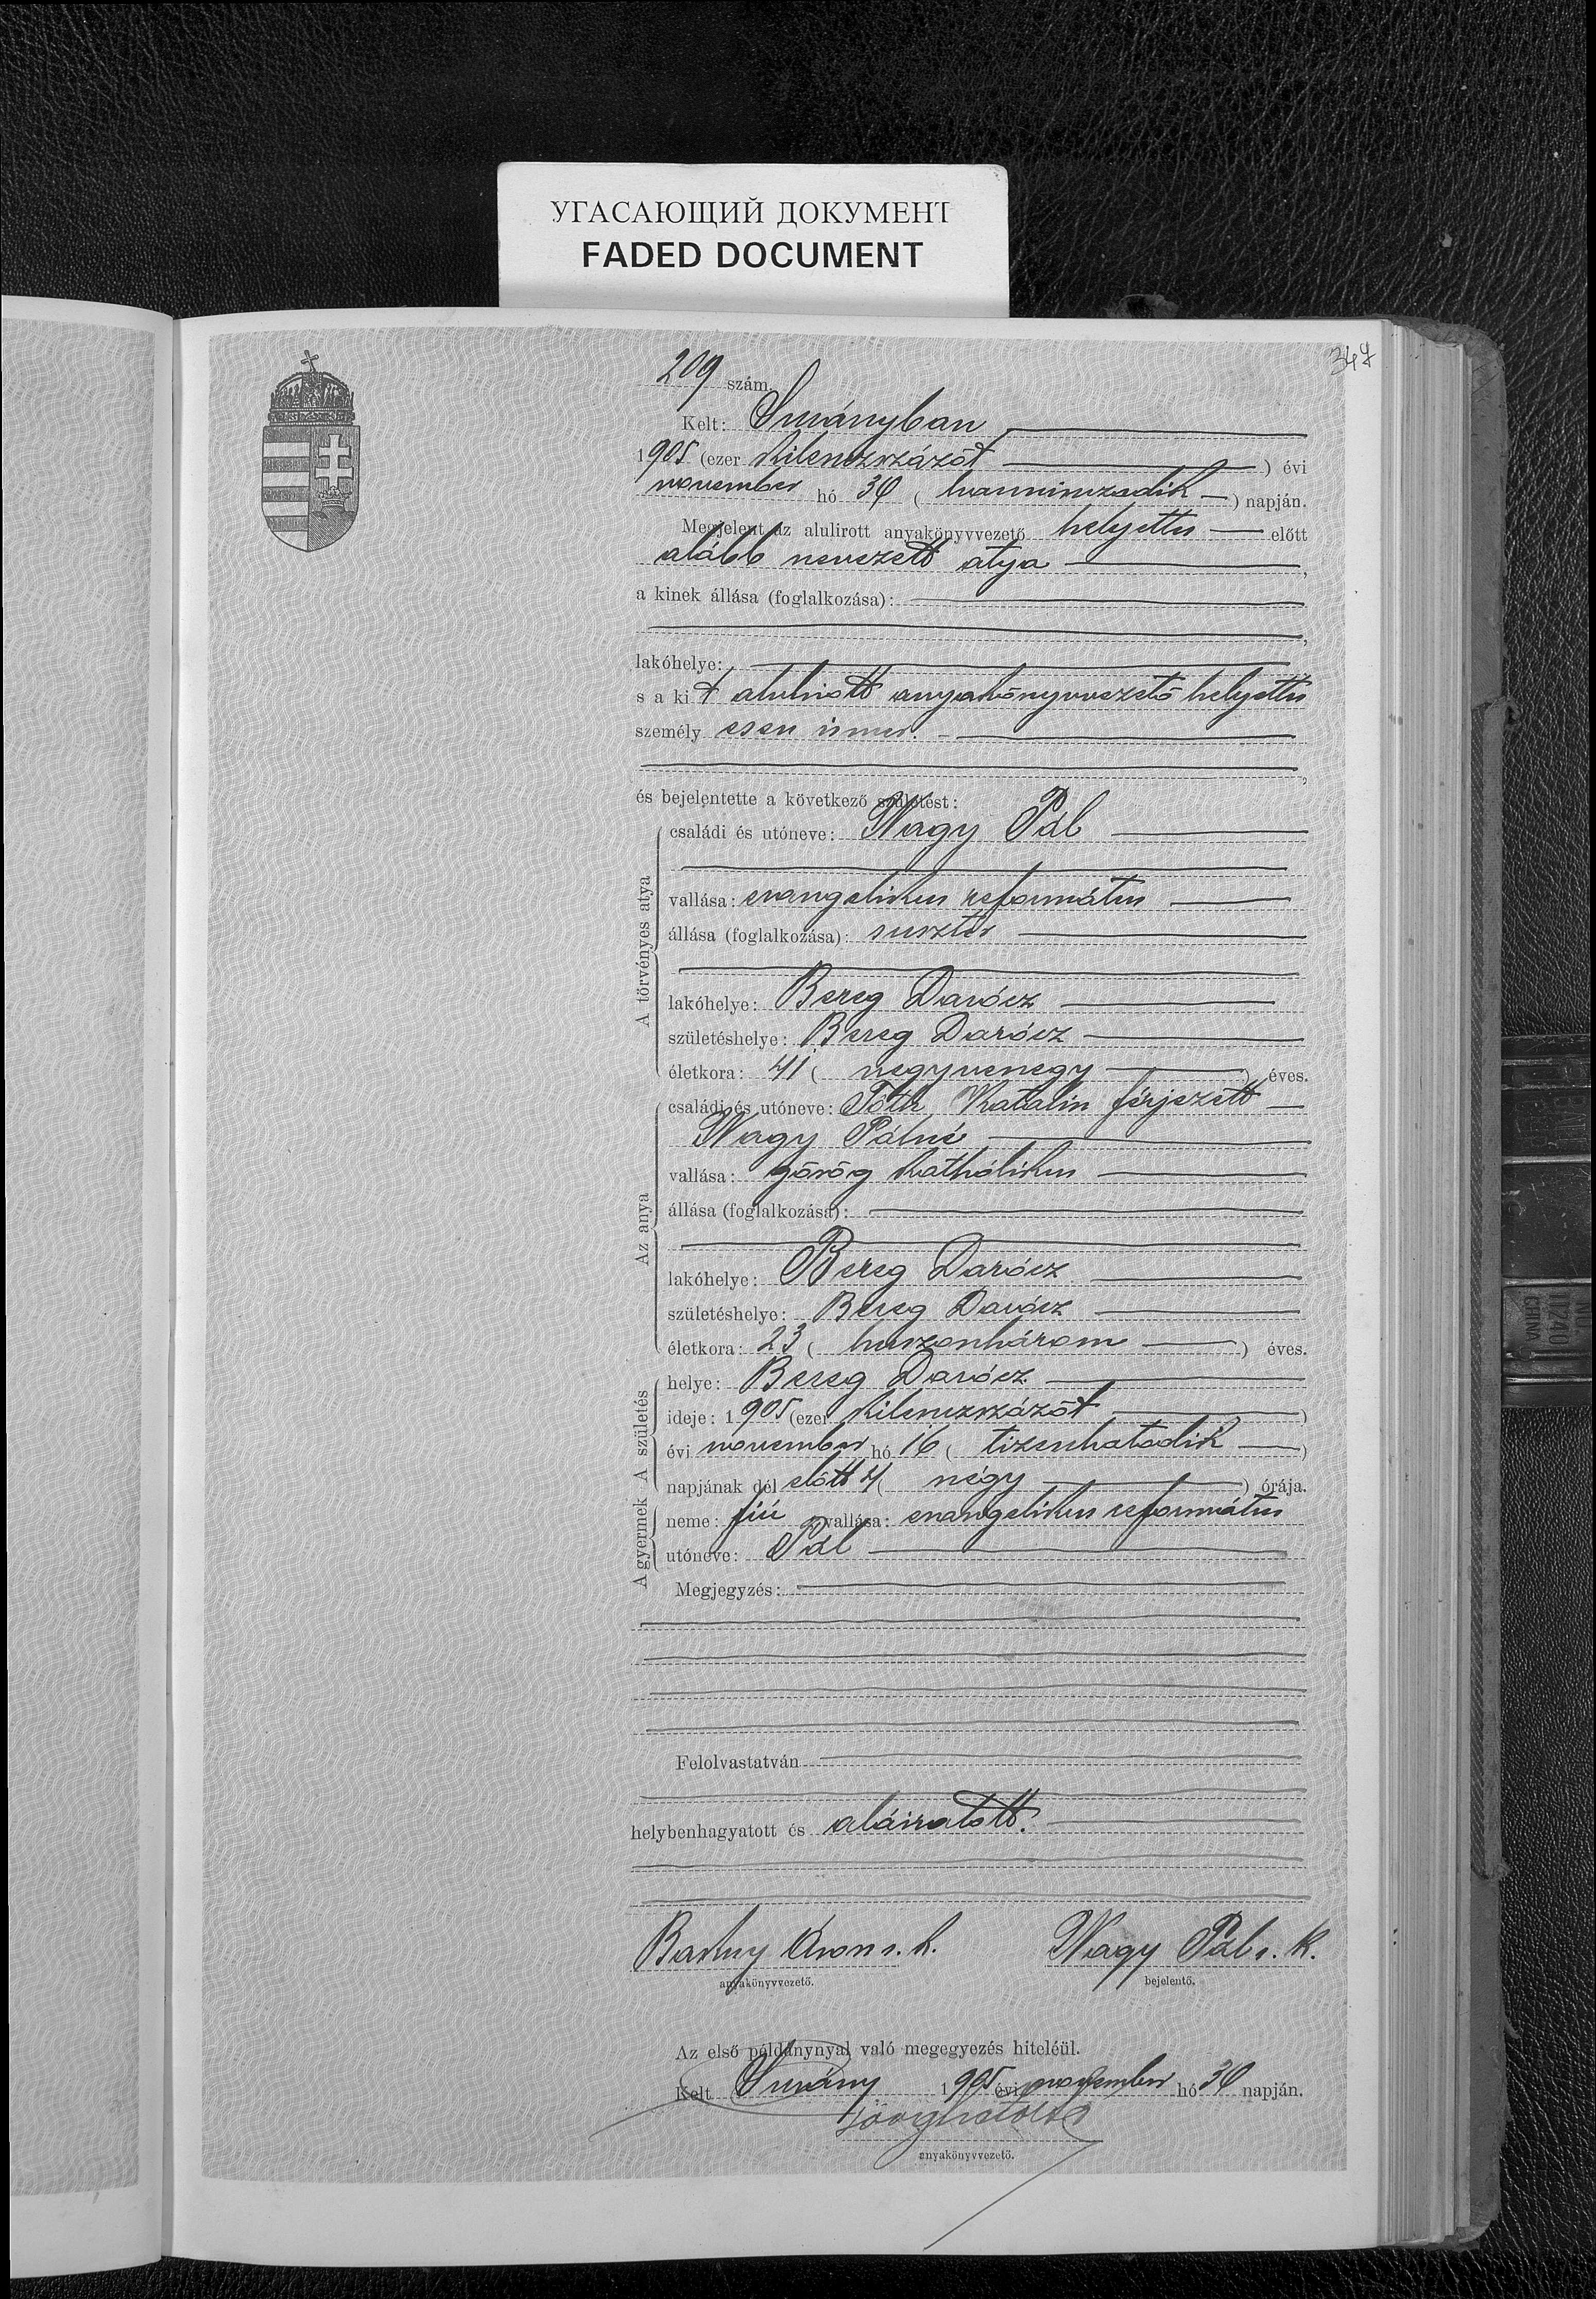 УГАСАЮЩИЙ ДОКУМЕНТ
FADED DOCUMENT
347
209 szám.
Kelt: Surányban
1905 (ezer kilenczszázöt) évi
november hó 30 (harminczadik) napján.
Megjelent az alulirott anyakönyvvezető helyettes előtt
alább nevezett atya,
a kinek állása (foglalkozása):
,
lakóhelye:
s a kit alulirott anyakönyvvezető helyettes
személyesen ismer.
,
és bejelentette a következő születést:
A törvényes atya
családi és utóneve: Nagy Pál
vallása: evangelikus református
állása (foglalkozása): suszter
lakóhelye: Bereg Darócz
születéshelye: Bereg Darócz
életkora: 41 (negyvenegy) éves.
Az anya
családi és utóneve: Tóth Katalin férjezett
Nagy Pálné
vallása: görög katholikus
állása (foglalkozása):
lakóhelye: Bereg Darócz
születéshelye: Bereg Darócz
életkora: 23 (huszonhárom) éves.
A születés
helye: Bereg Darócz
ideje: 1905 (ezer kilenczszázöt)
évi november hó 16 (tizenhatodik)
napjának dél előtt 4 (négy) órája.
A gyermek
neme: fiú vallása: evangelikus református
utóneve: Pál
Megjegyzés:
Felolvastatván
helybenhagyatott és aláiratott.
Barkay Áron s. k. Nagy Pál s. k.
anyakönyvvezető. bejelentő.
Az első példánynyal való megegyezés hiteléül.
Kelt Surány 1905 évi november hó 30 napján.
anyakönyvvezető.